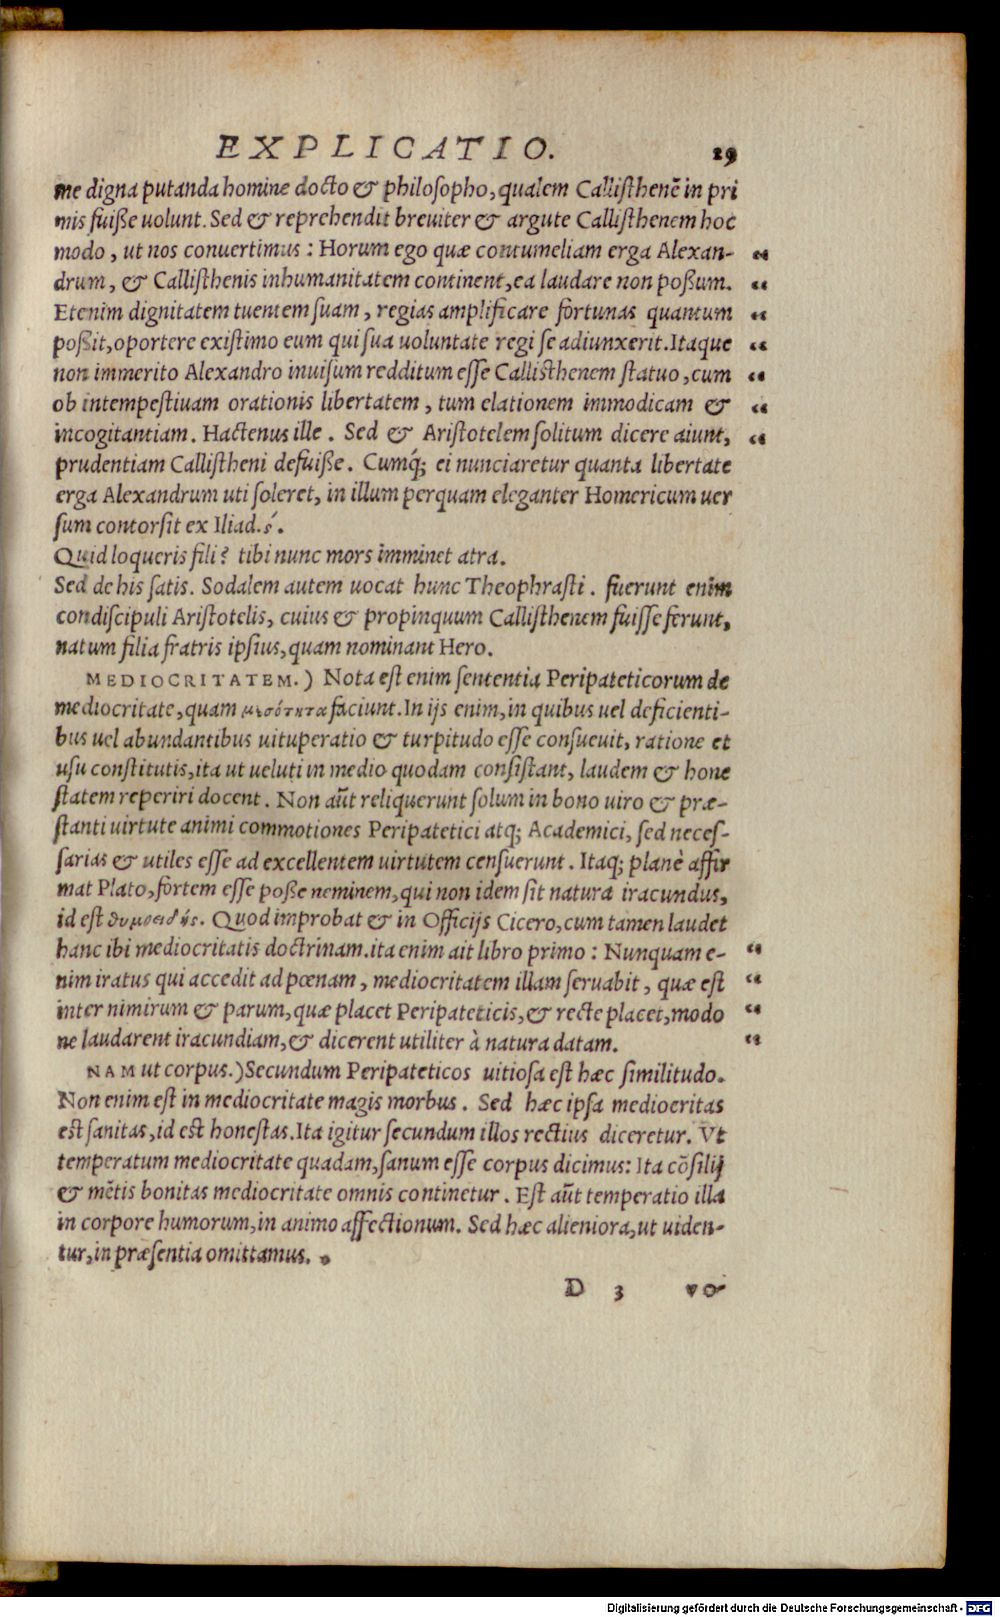 EXPLICATIO. 29
me digna putanda homine docto & philosopho, qualem Callisthenē in pri
mis fuiße uolunt. Sed & reprehendit breuiter & argute Callisthenem hoc
modo, ut nos conuertimus: Horum ego quæ contumeliam erga Alexan- “
drum, & Callisthenis inhumanitatem continent, ea laudare non poßum. “
Etenim dignitatem tuentem suam, regias amplificare fortunas quantum “
poßit, oportere existimo eum qui sua uoluntate regi se adiunxerit. Itaque “
non immerito Alexandro inuisum redditum esse Callisthenem statuo, cum “
ob intempestiuam orationis libertatem, tum elationem immodicam & “
incogitantiam. Hactenus ille. Sed & Aristotelem solitum dicere aiunt, “
prudentiam Callistheni defuiße. Cumq́; ei nunciaretur quanta libertate
erga Alexandrum uti soleret, in illum perquam eleganter Homericum uer
sum contorsit ex Iliad. ς́.
Quid loqueris fili? tibi nunc mors imminet atra.
Sed de his satis. Sodalem autem uocat hunc Theophrasti. fuerunt enim
condiscipuli Aristotelis, cuius & propinquum Callisthenem fuisse ferunt,
natum filia fratris ipsius, quam nominant Hero.
MEDIOCRITATEM.) Nota est enim sententia Peripateticorum de
mediocritate, quam μεσότητα faciunt. In ijs enim, in quibus uel deficienti-
bus uel abundantibus uituperatio & turpitudo esse consueuit, ratione et
usu constitutis, ita ut ueluti in medio quodam consistant, laudem & hone
statem reperiri docent. Non aūt reliquerunt solum in bono uiro & præ-
stanti uirtute animi commotiones Peripatetici atq; Academici, sed neces-
sarias & utiles esse ad excellentem uirtutem censuerunt. Itaq; planè affir
mat Plato, fortem esse poße neminem, qui non idem sit natura iracundus,
id est θυμοειδής. Quod improbat & in Officijs Cicero, cum tamen laudet
hanc ibi mediocritatis doctrinam. ita enim ait libro primo: Nunquam e- “
nim iratus qui accedit ad pœnam, mediocritatem illam seruabit, quæ est “
inter nimirum & parum, quæ placet Peripateticis, & recte placet, modo “
ne laudarent iracundiam, & dicerent utiliter à natura datam. “
NAM ut corpus.) Secundum Peripateticos uitiosa est hæc similitudo.
Non enim est in mediocritate magis morbus. Sed hæc ipsa mediocritas
est sanitas, id est honestas. Ita igitur secundum illos rectius diceretur. Vt
temperatum mediocritate quadam, sanum esse corpus dicimus: Ita cōsilij
& mētis bonitas mediocritate omnis continetur. Est aūt temperatio illa
in corpore humorum, in animo affectionum. Sed hæc alieniora, ut uiden-
tur, in præsentia omittamus.
D 3 vo-
Digitalisierung gefördert durch die Deutsche Forschungsgemeinschaft - DFG